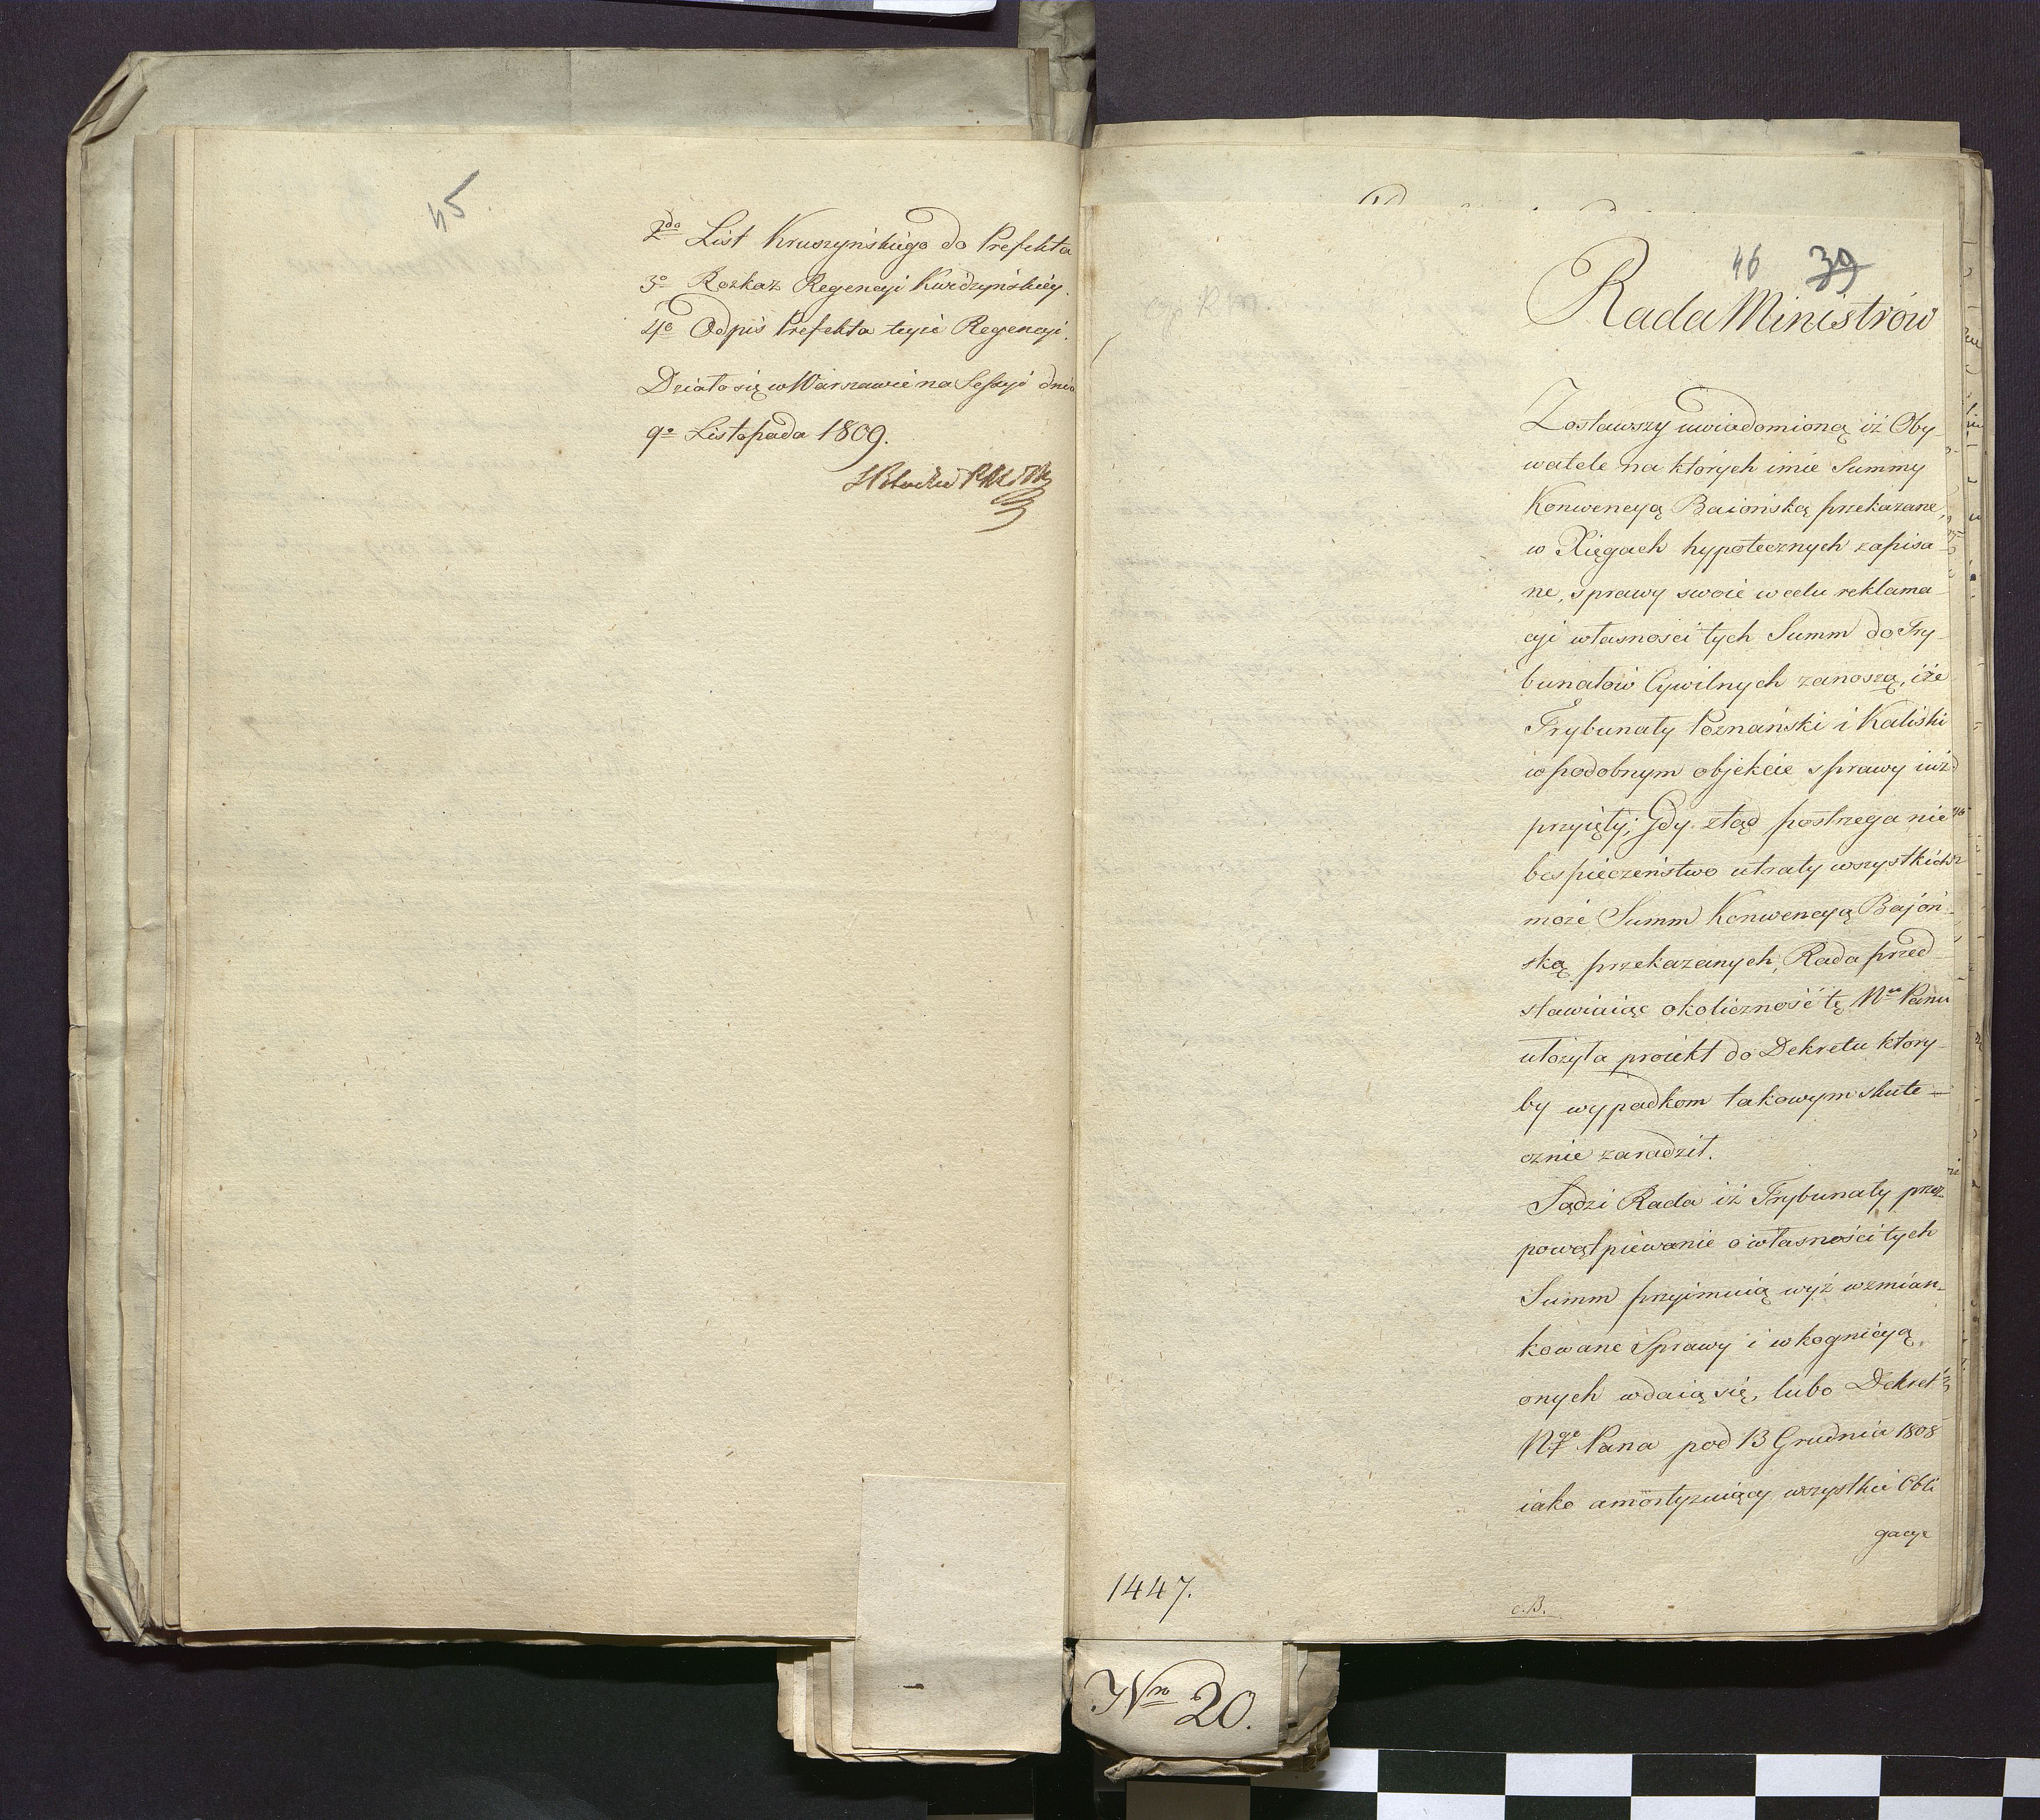 45.
2do List Kruszyńskiego do Prefekta
3o Rozkaz Regencyi Kwidzyńskiey.
4o Odpis Prefekta teyże Regencyi.
Działo się w Warszawie na Sessyi dnia
9o Listopada 1809.
46 39
Rada Ministrów
Zostawszy uwiadomioną iż Oby-
watele na których imie Summy
Konwencyą Baiońską przekazane,
w Xięgach hypotecznych zapisa-
ne, sprawy swoie w celu reklama-
cyi własności tych Summ do Try-
bunałów Cywilnych zanoszą, iże
Trybunały Poznański i Kaliski
w podobnym objekcie sprawy iuż
przyięły; Gdy ztąd postrzega nie
bespieczeństwo utraty wszystkich
może Summ Konwencyą Bajoń-
ską przekazanych, Rada przed-
stawiaiąc okoliczność tę Nmu Panu
ułożyła proiekt do Dekretu który-
by wypadkom takowym skute-
cznie zaradził.
Sądzi Rada iż Trybunały przez
powątpiewanie o własności tych
Summ przyimuią wyż wzmian-
kowane Sprawy i w kognicyą
onych wdaią się, lubo Dekret
Ngo Pana pod 13 Grudnia 1808
iako amortyzuiący wszystkie Obli
gacye
1447.
c.B.
Nro 20.